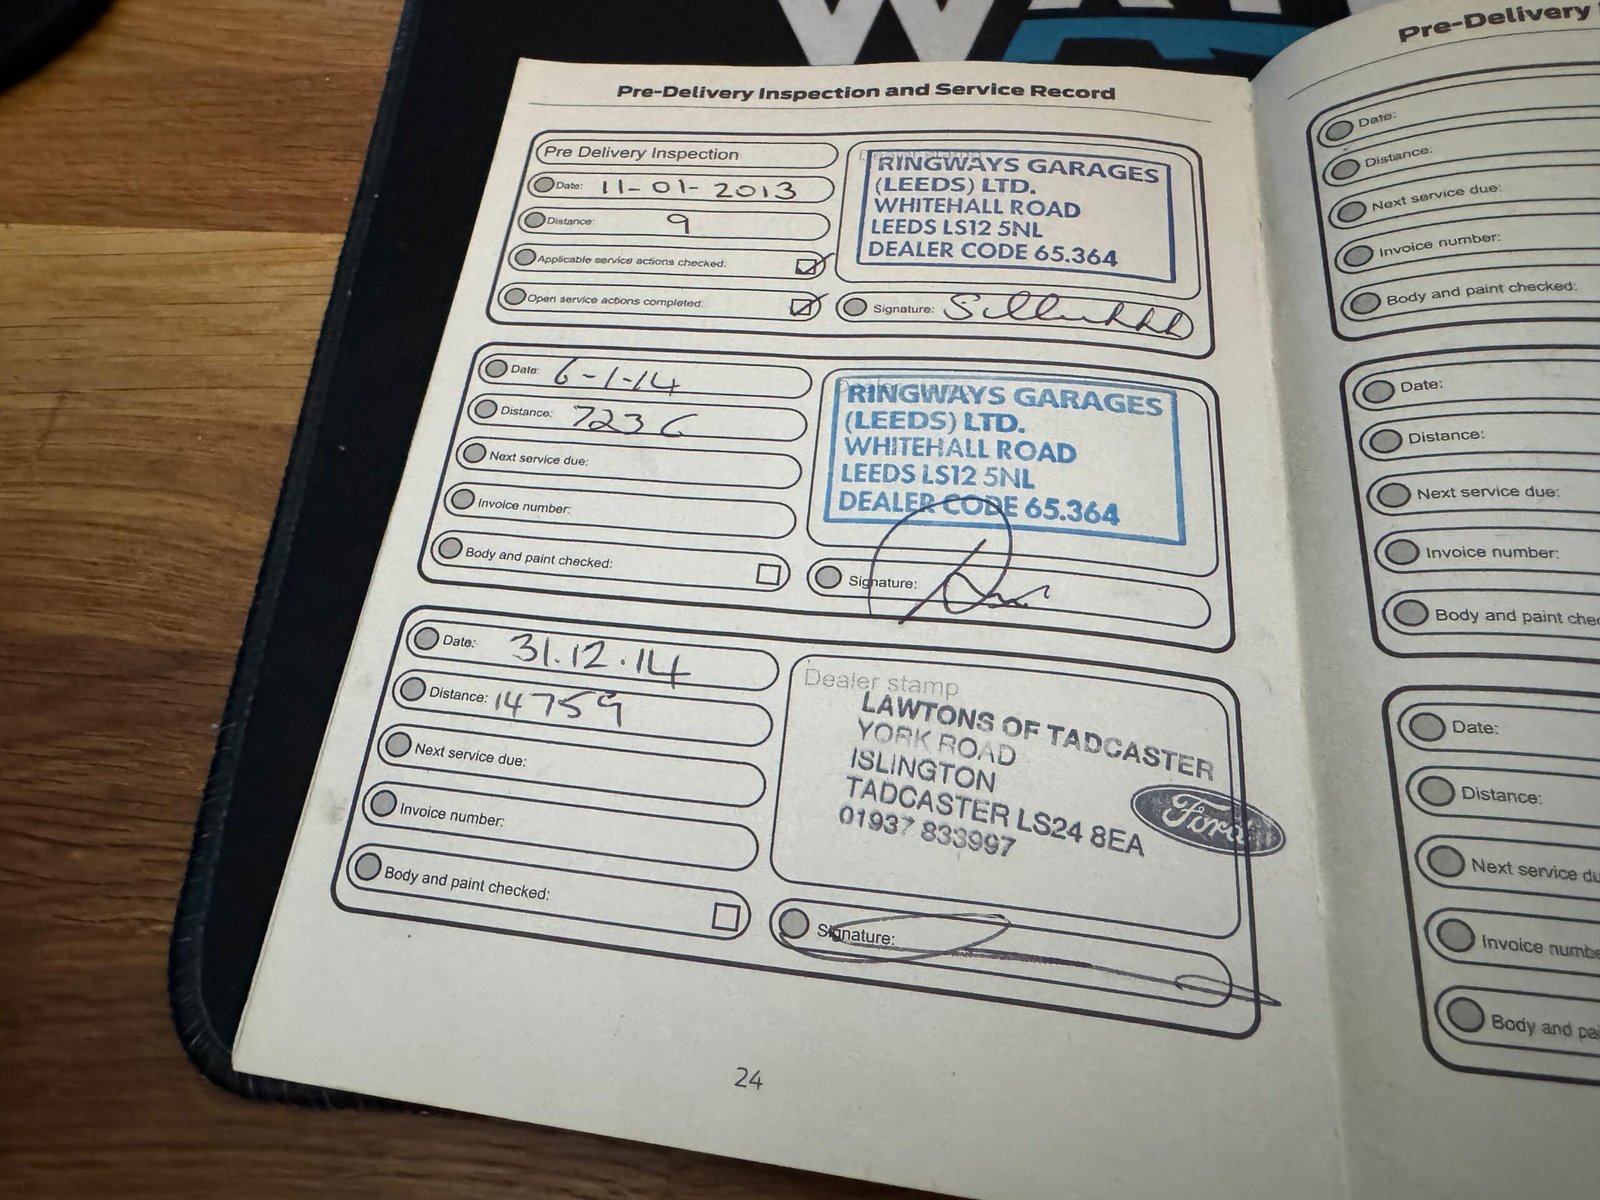 Pre-Delivery Inspection and Service Record
Pre Delivery Inspection
Date: 11-01-2013
Distance: 9
Applicable service actions checked:
Open service actions completed:
RINGWAYS GARAGES
(LEEDS) LTD.
WHITEHALL ROAD
LEEDS LS12 5NL
DEALER CODE 65.364
Signature:
Date: 6-1-14
Distance: 7236
Next service due:
Invoice number:
Body and paint checked:
RINGWAYS GARAGES
(LEEDS) LTD.
WHITEHALL ROAD
LEEDS LS12 5NL
DEALER CODE 65.364
Signature:
Date: 31.12.14
Distance: 14759
Next service due:
Invoice number:
Body and paint checked:
Dealer stamp
LAWTONS OF TADCASTER
YORK ROAD
ISLINGTON
TADCASTER LS24 8EA
01937 833997
Ford
Signature:
24
Pre-Delivery
Date:
Distance:
Next service due:
Invoice number:
Body and paint checked:
Date:
Distance:
Next service due:
Invoice number:
Body and paint
Date:
Distance:
Next service
Invoice
Body and